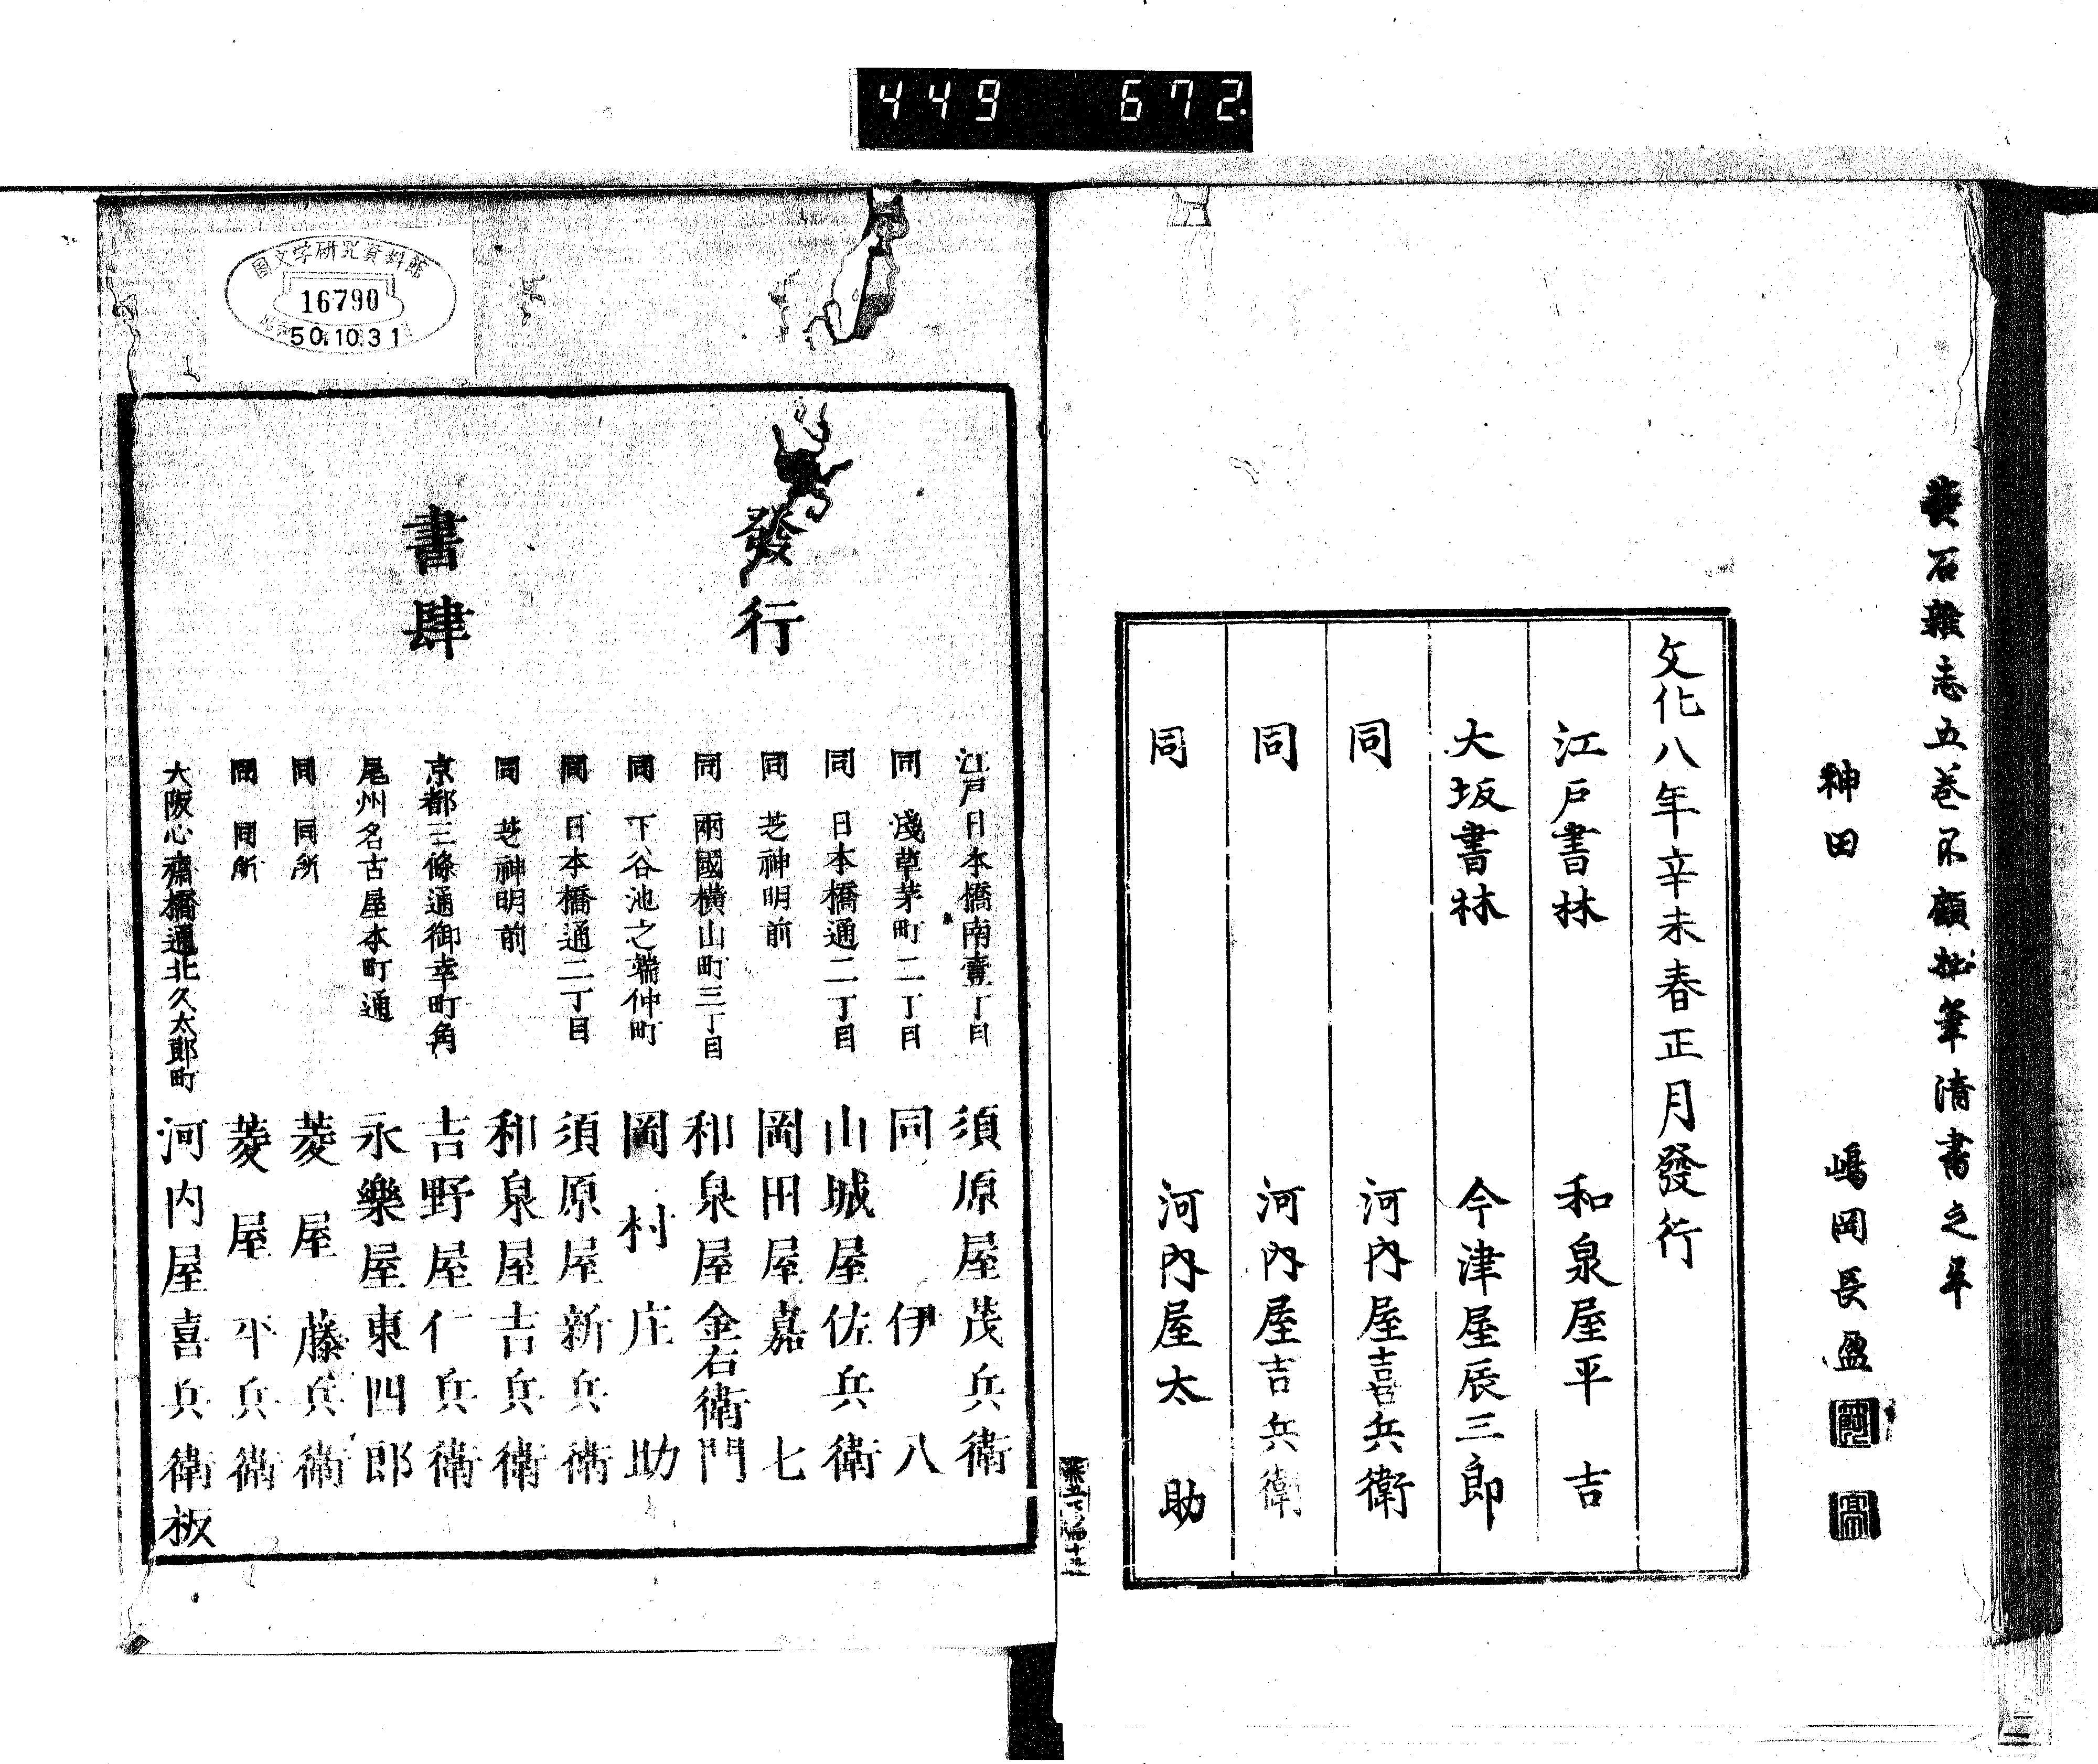 449 672
蓑石雜志五巻不顧拙筆清書之畢
神田 嶋岡長盈
文化八年辛未春正月發行
江戸書林 和泉屋平吉
大坂書林 今津屋辰三郎
同 河内屋喜兵衛
同 河内屋吉兵衛
同 河内屋太助
國文学研究資料館
16790
50.10.31
發行
書肆
江戸日本橋南壹丁目 須原屋茂兵衛
同 淺草茅町二丁目 同 伊八
同 日本橋通二丁目 山城屋佐兵衛
同 芝神明前 岡田屋嘉七
同 兩國横山町三丁目 和泉屋金右衛門
同 下谷池之端仲町 岡村庄助
同 日本橋通二丁目 須原屋新兵衛
同 芝神明前 和泉屋吉兵衛
京都三條通御幸町角 吉野屋仁兵衛
尾州名古屋本町通 永樂屋東四郎
同 同所 菱屋藤兵衛
同 同所 菱屋平兵衛
大阪心齋橋通北久太郎町 河内屋喜兵衛板